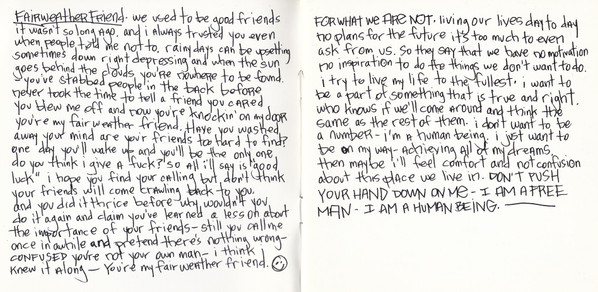 FAIRWEATHER FRIEND. we used to be good friends
it wasn't so long ago. and i always trusted you even
when people told me not to. rainy days can be upsetting
sometimes down right depressing and when the sun
goes behind the clouds you're nowhere to be found.
you've stabbed people in the back before
never took the time to tell a friend you cared
you blew me off and now you're knockin' on my door
you're my fair weather friend. Have you washed
away your mind are your friends too hard to find?
one day you'll wake up and you'll be the only one.
do you think i give a "fuck?" so all i'll say is "good
luck" i hope you find your calling but, don't think
your friends will come crawling back to you.
and you did it thrice before why wouldn't you
do it again and claim you've learned a lesson about
the importance of your friends - still you call me
once in awhile and pretend there's nothing wrong -
CONFUSED you're not your own man - i think i
knew it along - You're my fair weather friend.
FOR WHAT WE ARE NOT. living our lives day to day
no plans for the future it's too much to even
ask from us. So they say that we have no motivation
no inspiration to do the things we don't want to do.
i try to live my life to the fullest. i want to
be a part of something that is true and right.
who knows if we'll come around and think the
same as the rest of them. i don't want to be
a number - i'm a human being. i just want to
be on my way - achieving all of my dreams.
then maybe i'll feel comfort and not confusion
about this place we live in. DON'T PUSH
YOUR HAND DOWN ON ME - I AM A FREE
MAN - I AM A HUMAN BEING.